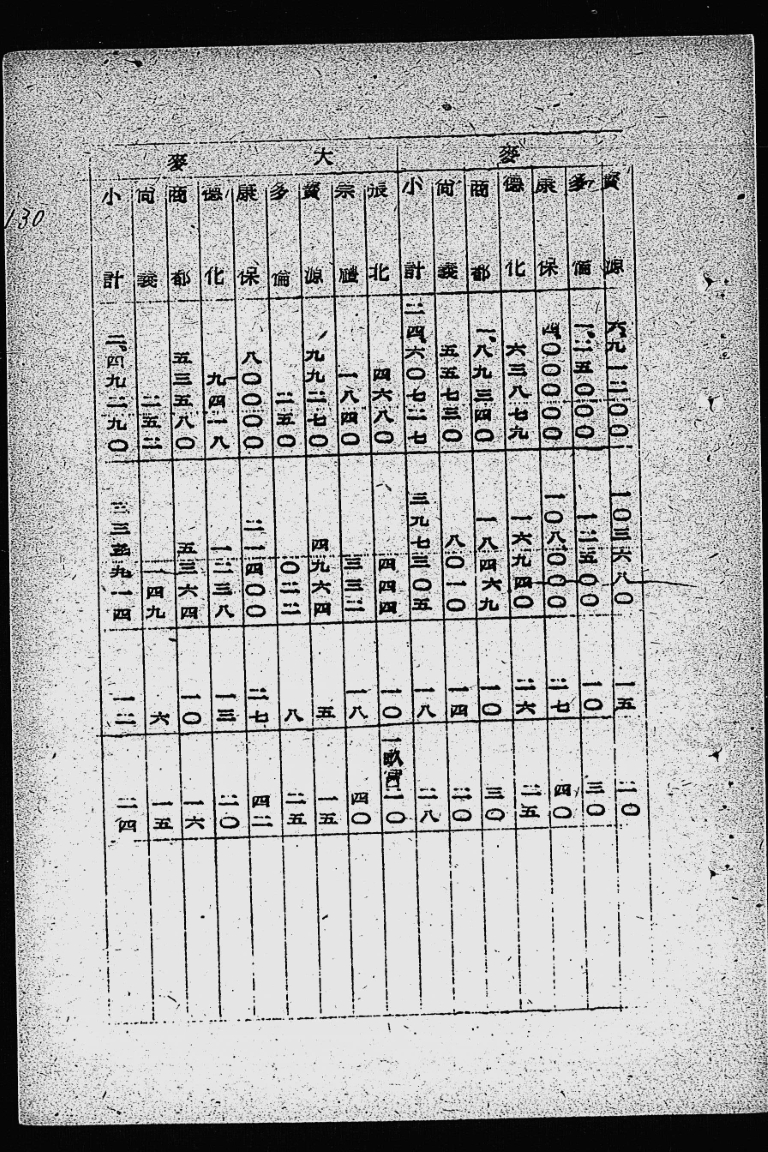 麥
資源 六、九一二〇〇 一〇三六八〇 一五 二〇
多倫 一、二五〇〇〇 一二五〇〇 一〇 三〇
康保 四、〇〇〇〇〇 一〇八〇〇〇 二七 四〇
德化 六三八七九 一六九四〇 二六 二五
商都 一、八九三四〇 一八四六九 一〇 三〇
尚義 五五七三〇 八〇一〇 一四 二〇
小計 二四、六〇七二七 三九七三〇五 一八 二八
大麥
張北 四六八〇 四四四 一〇 一畝 二〇
崇禮 一八四〇 三三二 一八 四〇
資源 九九二七〇 四九六四 五 一五
多倫 二五〇 〇二二 八 二五
康保 八〇〇〇〇 二一四〇〇 二七 四二
德化 九四一八 一二三八 一三 二〇
商都 五三五八〇 五三六四 一〇 一六
尚義 二五二 一四九 六 一五
小計 二、四九二九〇 一二 二四
130